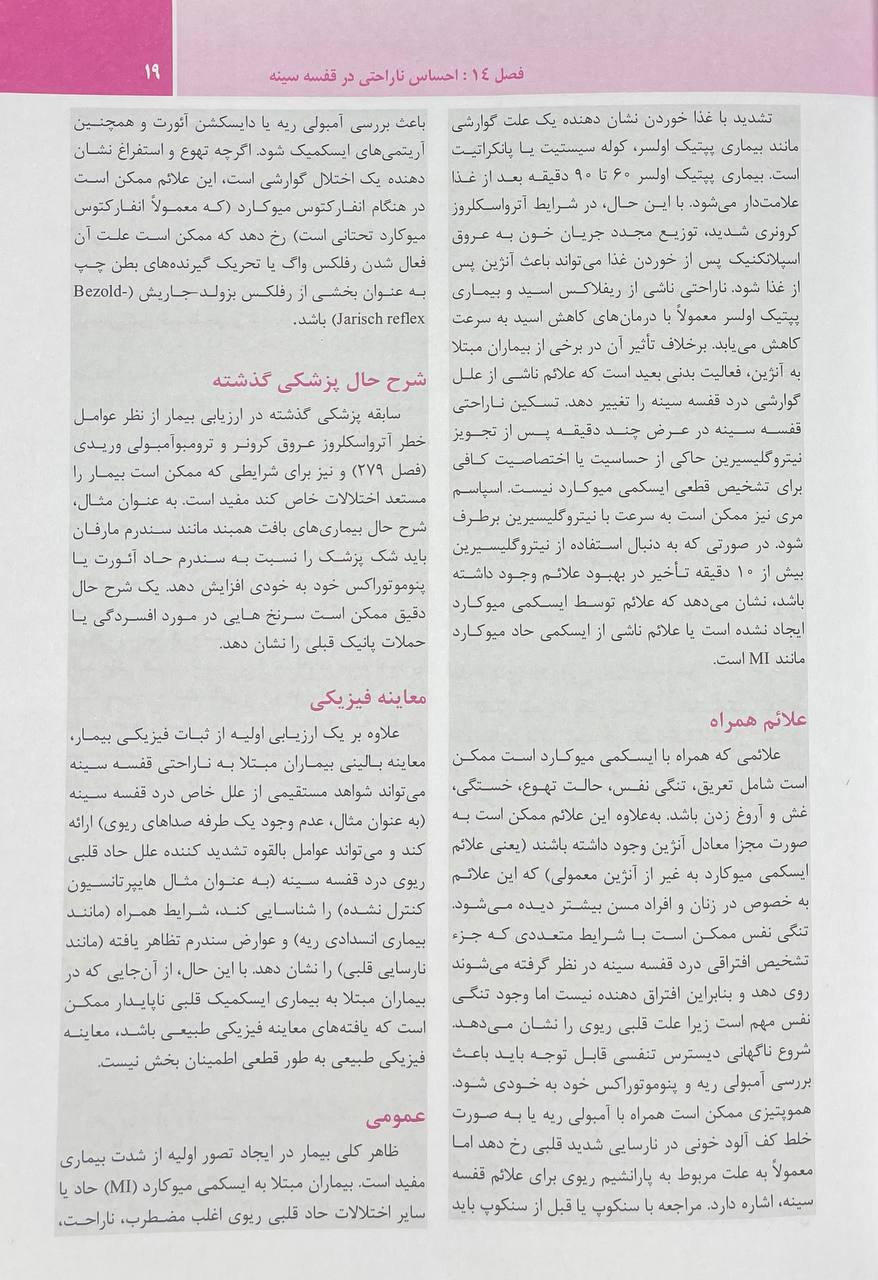 فصل ١٤ : احساس ناراحتی در قفسه سینه
۱۹
تشدید با غذا خوردن نشان دهنده یک علت گوارشی
مانند بیماری پپتیک اولسر، کوله سیستیت یا پانکراتیت
است. بیماری پپتیک اولسر ۶۰ تا ۹۰ دقیقه بعد از غذا
علامت‌دار می‌شود. با این حال، در شرایط آترواسکلروز
کرونری شدید، توزیع مجدد جریان خون به عروق
اسپلانکنیک پس از خوردن غذا می‌تواند باعث آنژین پس
از غذا شود. ناراحتی ناشی از ریفلاکس اسید و بیماری
پپتیک اولسر معمولاً با درمان‌های کاهش اسید به سرعت
کاهش می‌یابد. برخلاف تأثیر آن در برخی از بیماران مبتلا
به آنژین، فعالیت بدنی بعید است که علائم ناشی از علل
گوارشی درد قفسه سینه را تغییر دهد. تسکین ناراحتی
قفسه سینه در عرض چند دقیقه پس از تجویز
نیتروگلیسیرین حاکی از حساسیت یا اختصاصیت کافی
برای تشخیص قطعی ایسکمی میوکارد نیست. اسپاسم
مری نیز ممکن است به سرعت با نیتروگلیسیرین برطرف
شود. در صورتی که به دنبال استفاده از نیتروگلیسیرین
بیش از ۱۰ دقیقه تأخیر در بهبود علائم وجود داشته
باشد، نشان می‌دهد که علائم توسط ایسکمی میوکارد
ایجاد نشده است یا علائم ناشی از ایسکمی حاد میوکارد
مانند MI است.
علائم همراه
علائمی که همراه با ایسکمی میوکارد است ممکن
است شامل تعریق، تنگی نفس، حالت تهوع، خستگی،
غش و آروغ زدن باشد. به‌علاوه این علائم ممکن است به
صورت مجزا معادل آنژین وجود داشته باشند (یعنی علائم
ایسکمی میوکارد به غیر از آنژین معمولی) که این علائم
به خصوص در زنان و افراد مسن بیشتر دیده می‌شود.
تنگی نفس ممکن است با شرایط متعددی که جزء
تشخیص افتراقی درد قفسه سینه در نظر گرفته می‌شوند
روی دهد و بنابراین افتراق دهنده نیست اما وجود تنگی
نفس مهم است زیرا علت قلبی ریوی را نشان می‌دهد.
شروع ناگهانی دیسترس تنفسی قابل توجه باید باعث
بررسی آمبولی ریه و پنوموتوراکس خود به خودی شود.
هموپتیزی ممکن است همراه با آمبولی ریه یا به صورت
خلط کف آلود خونی در نارسایی شدید قلبی رخ دهد اما
معمولاً به علت مربوط به پارانشیم ریوی برای علائم قفسه
سینه، اشاره دارد. مراجعه با سنکوپ یا قبل از سنکوپ باید
باعث بررسی آمبولی ریه یا دایسکشن آئورت و همچنین
آریتمی‌های ایسکمیک شود. اگرچه تهوع و استفراغ نشان
دهنده یک اختلال گوارشی است، این علائم ممکن است
در هنگام انفارکتوس میوکارد (که معمولاً انفارکتوس
میوکارد تحتانی است) رخ دهد که ممکن است علت آن
فعال شدن رفلکس واگ یا تحریک گیرنده‌های بطن چپ
به عنوان بخشی از رفلکس بزولد-جاریش (Bezold-
Jarisch reflex) باشد.
شرح حال پزشکی گذشته
سابقه پزشکی گذشته در ارزیابی بیمار از نظر عوامل
خطر آترواسکلروز عروق کرونر و ترومبوآمبولی وریدی
(فصل ۲۷۹) و نیز برای شرایطی که ممکن است بیمار را
مستعد اختلالات خاص کند مفید است. به عنوان مثال،
شرح حال بیماری‌های بافت همبند مانند سندرم مارفان
باید شک پزشک را نسبت به سندرم حاد آئورت یا
پنوموتوراکس خود به خودی افزایش دهد. یک شرح حال
دقیق ممکن است سرنخ هایی در مورد افسردگی یا
حملات پانیک قبلی را نشان دهد.
معاینه فیزیکی
علاوه بر یک ارزیابی اولیه از ثبات فیزیکی بیمار،
معاینه بالینی بیماران مبتلا به ناراحتی قفسه سینه
می‌تواند شواهد مستقیمی از علل خاص درد قفسه سینه
(به عنوان مثال، عدم وجود یک طرفه صداهای ریوی) ارائه
کند و می‌تواند عوامل بالقوه تشدید کننده علل حاد قلبی
ریوی درد قفسه سینه (به عنوان مثال هایپرتانسیون
کنترل نشده) را شناسایی کند، شرایط همراه (مانند
بیماری انسدادی ریه) و عوارض سندرم تظاهر یافته (مانند
نارسایی قلبی) را نشان دهد. با این حال، از آن‌جایی که در
بیماران مبتلا به بیماری ایسکمیک قلبی ناپایدار ممکن
است که یافته‌های معاینه فیزیکی طبیعی باشد، معاینه
فیزیکی طبیعی به طور قطعی اطمینان بخش نیست.
عمومی
ظاهر کلی بیمار در ایجاد تصور اولیه از شدت بیماری
مفید است. بیماران مبتلا به ایسکمی میوکارد (MI) حاد یا
سایر اختلالات حاد قلبی ریوی اغلب مضطرب، ناراحت،